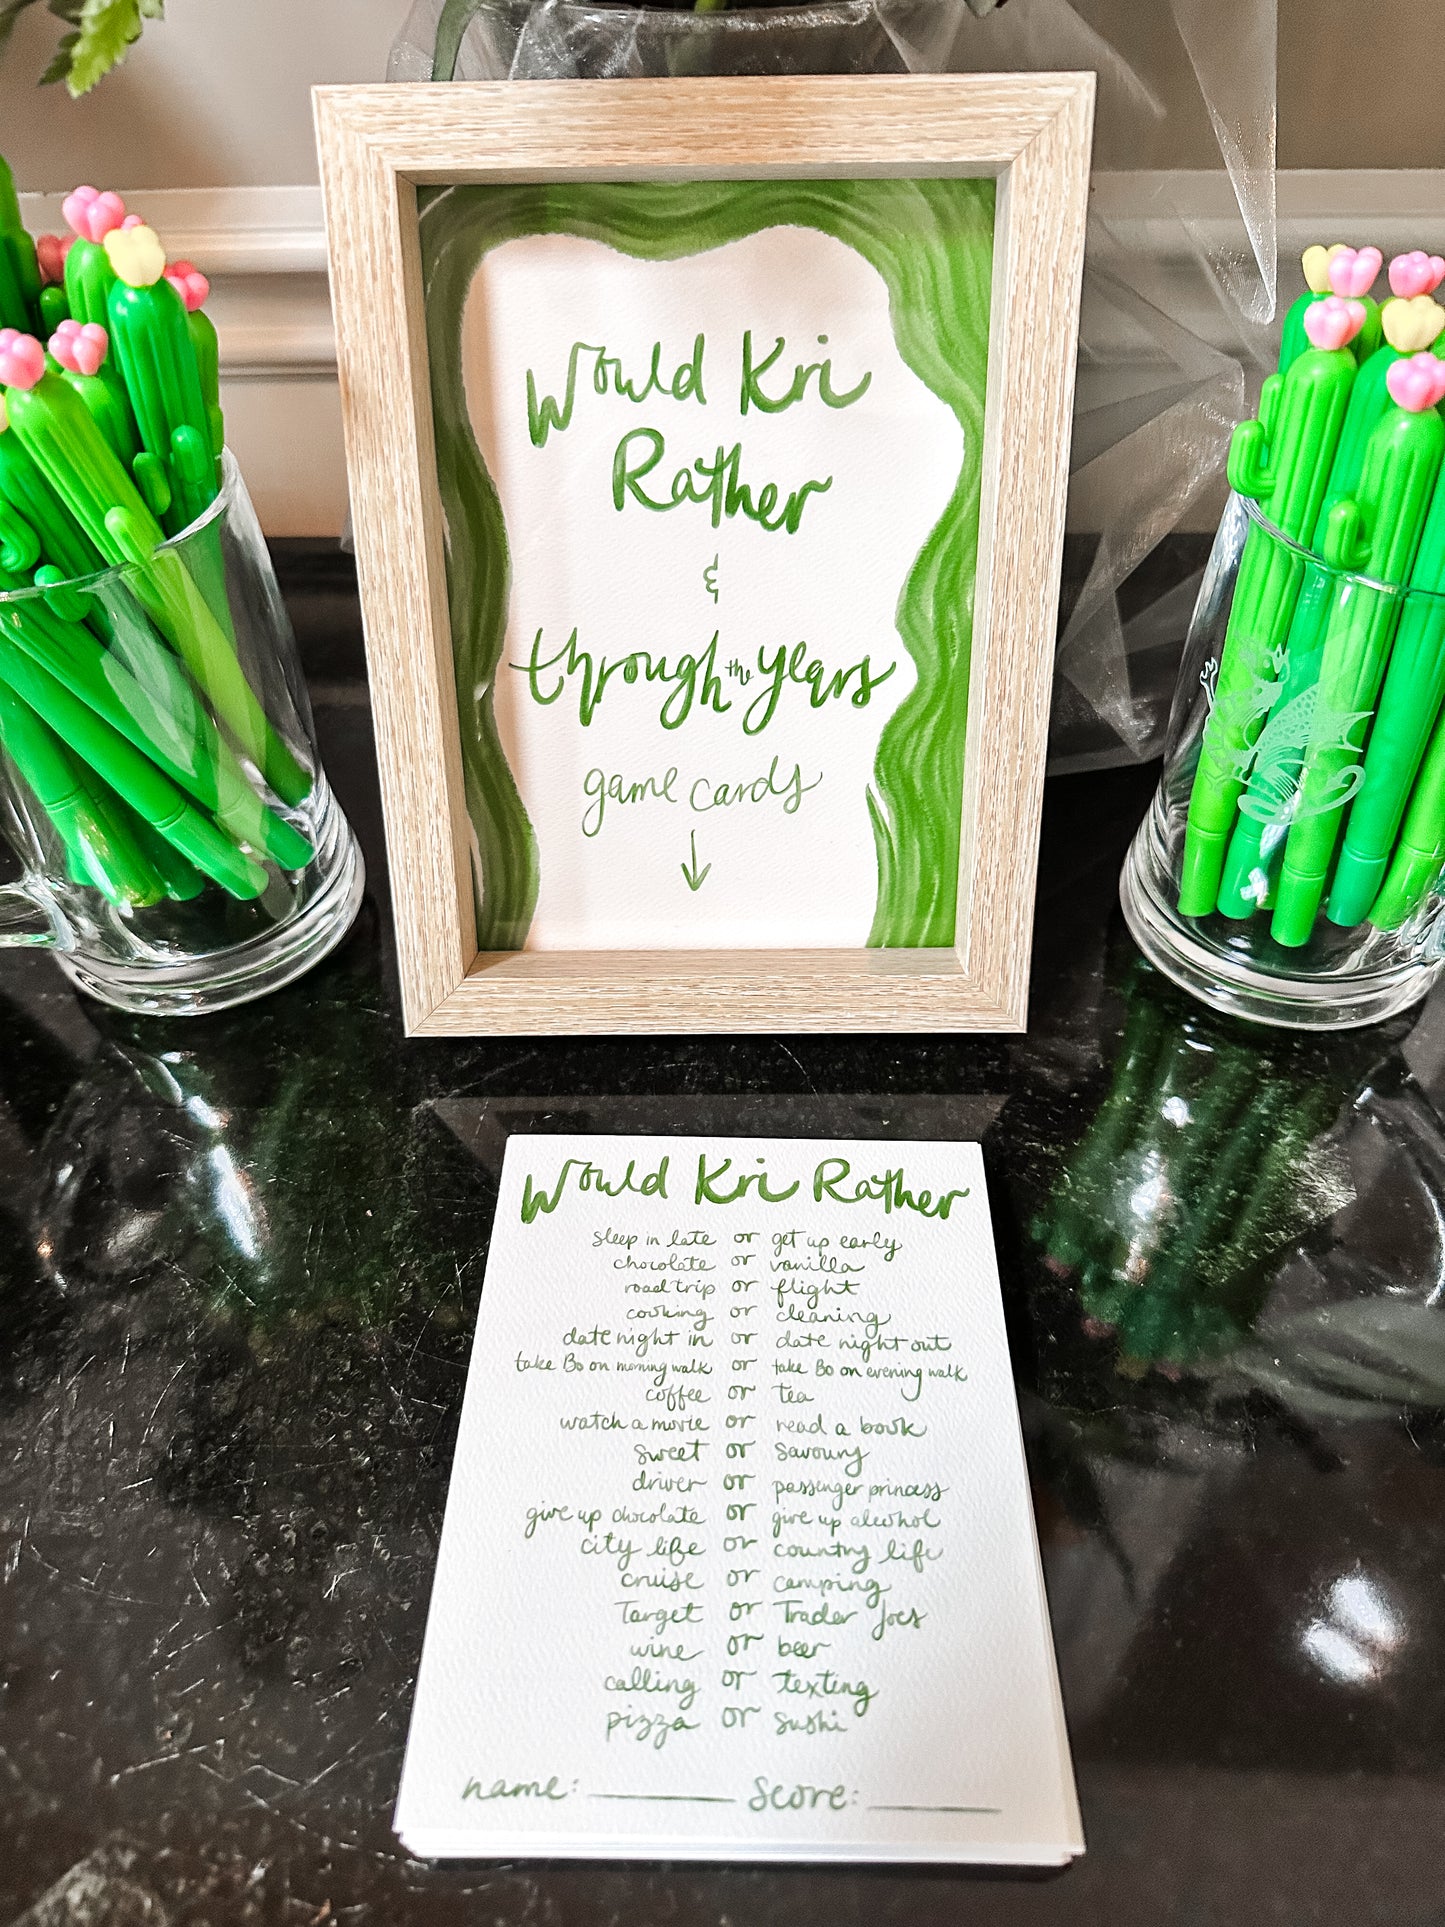 Would Kri
Rather
&
through the years
game cards
Would Kri Rather
sleep in late or get up early
chocolate or vanilla
road trip or flight
cooking or cleaning
date night in or date night out
take Bo on morning walk or take Bo on evening walk
coffee or tea
watch a movie or read a book
sweet or savoury
driver or passenger princess
give up chocolate or give up alcohol
city life or country life
cruise or camping
Target or Trader Joes
wine or beer
calling or texting
pizza or sushi
name: score: